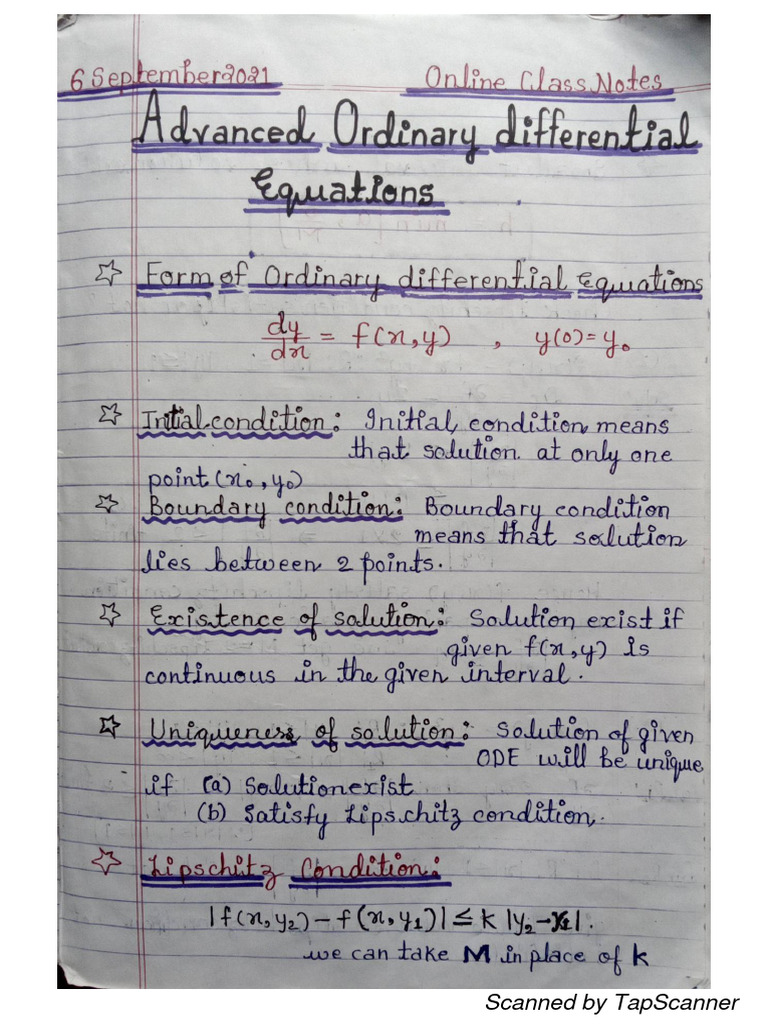 6 September 2021 Online Class Notes
Advanced Ordinary differential
Equations
☆ Form of Ordinary differential Equations
dy/dx = f(x,y) , y(0)=y₀
☆ Initial condition: Initial condition means
that solution at only one
point (x₀, y₀)
☆ Boundary condition: Boundary condition
means that solution
lies between 2 points.
☆ Existence of solution: Solution exist if
given f(x,y) is
continuous in the given interval.
☆ Uniqueness of solution: Solution of given
ODE will be unique
if (a) Solution exist
(b) Satisfy Lipschitz condition.
☆ Lipschitz Condition:
|f(x,y₂) - f(x,y₁)| ≤ k |y₂-y₁|.
we can take M in place of k
Scanned by TapScanner